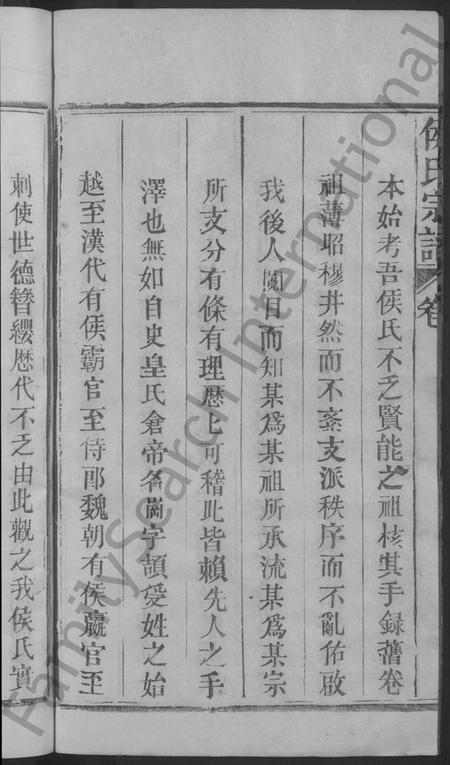 侯氏宗譜 卷
本始考吾侯氏不乏賢能之祖核其手錄舊卷
祖薄昭穆井然而不紊支派秩序而不亂佑啟
我後人閱目而知某爲某祖所承流某爲某宗
所支分有條有理歷上可稽此皆賴先人之手
澤也無如自史皇氏倉帝名頡受姓之始
越至漢代有侯霸官至侍郎魏朝有侯嬴官至
刺使世德簪纓歷代不乏由此觀之我侯氏實
FamilySearch International